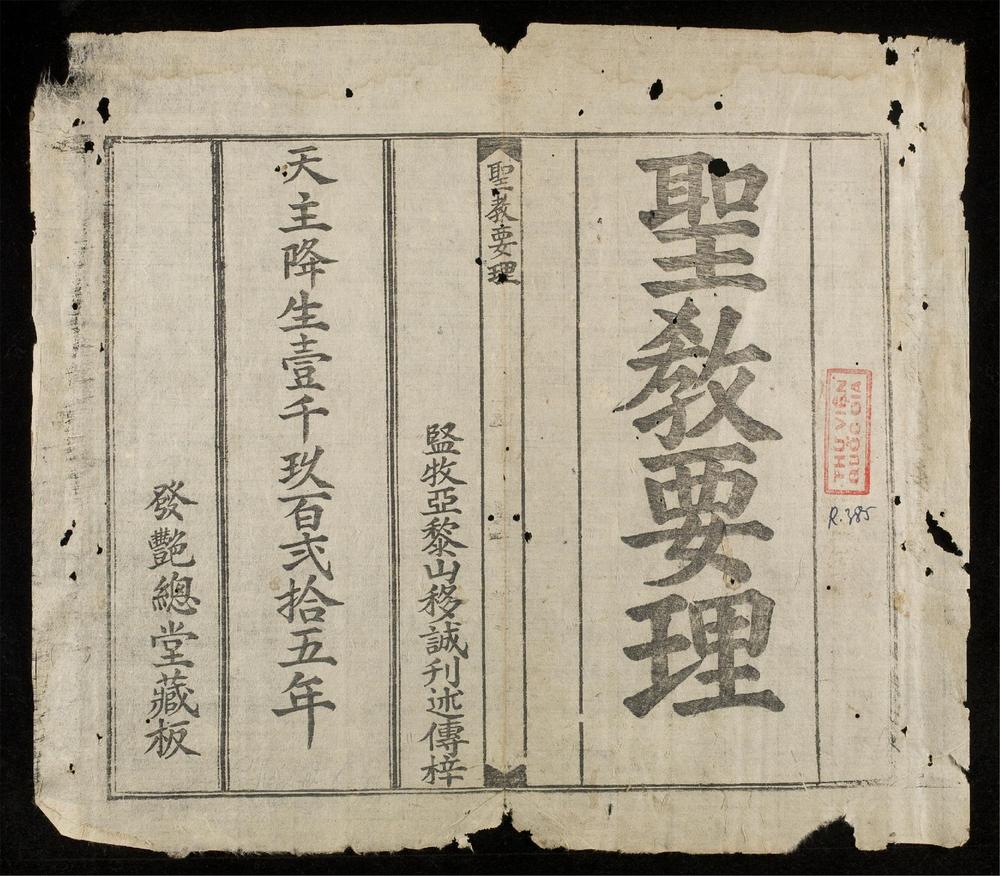 聖教要理
聖教要理
監牧亞黎山移誠刋述傳梓
天主降生壹千玖百弍拾五年
發艷總堂藏板
THƯ VIỆN
QUỐC GIA
R.385